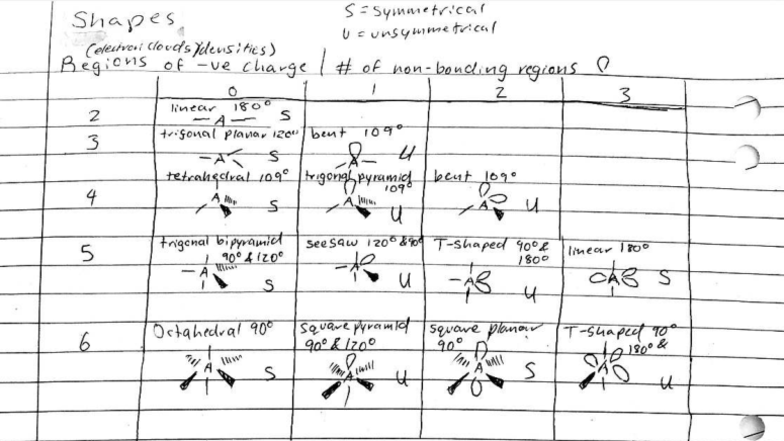 Shapes
S = symmetrical
U = unsymmetrical
(electron clouds/densities)
Regions of -ve charge | # of non-bonding regions
0 1 2 3
2
linear 180°
A S
3
trigonal planar 120°
A S
bent 109°
A U
4
tetrahedral 109°
A S
trigonal pyramid
109°
A U
bent 109°
A U
5
trigonal bipyramid
90° & 120°
A S
seesaw 120° & 90°
A U
T-shaped 90° &
180°
A U
linear 180°
A S
6
Octahedral 90°
A S
square pyramid
90° & 120°
A U
square planar
90°
A S
T-shaped 90°
180° &
A U